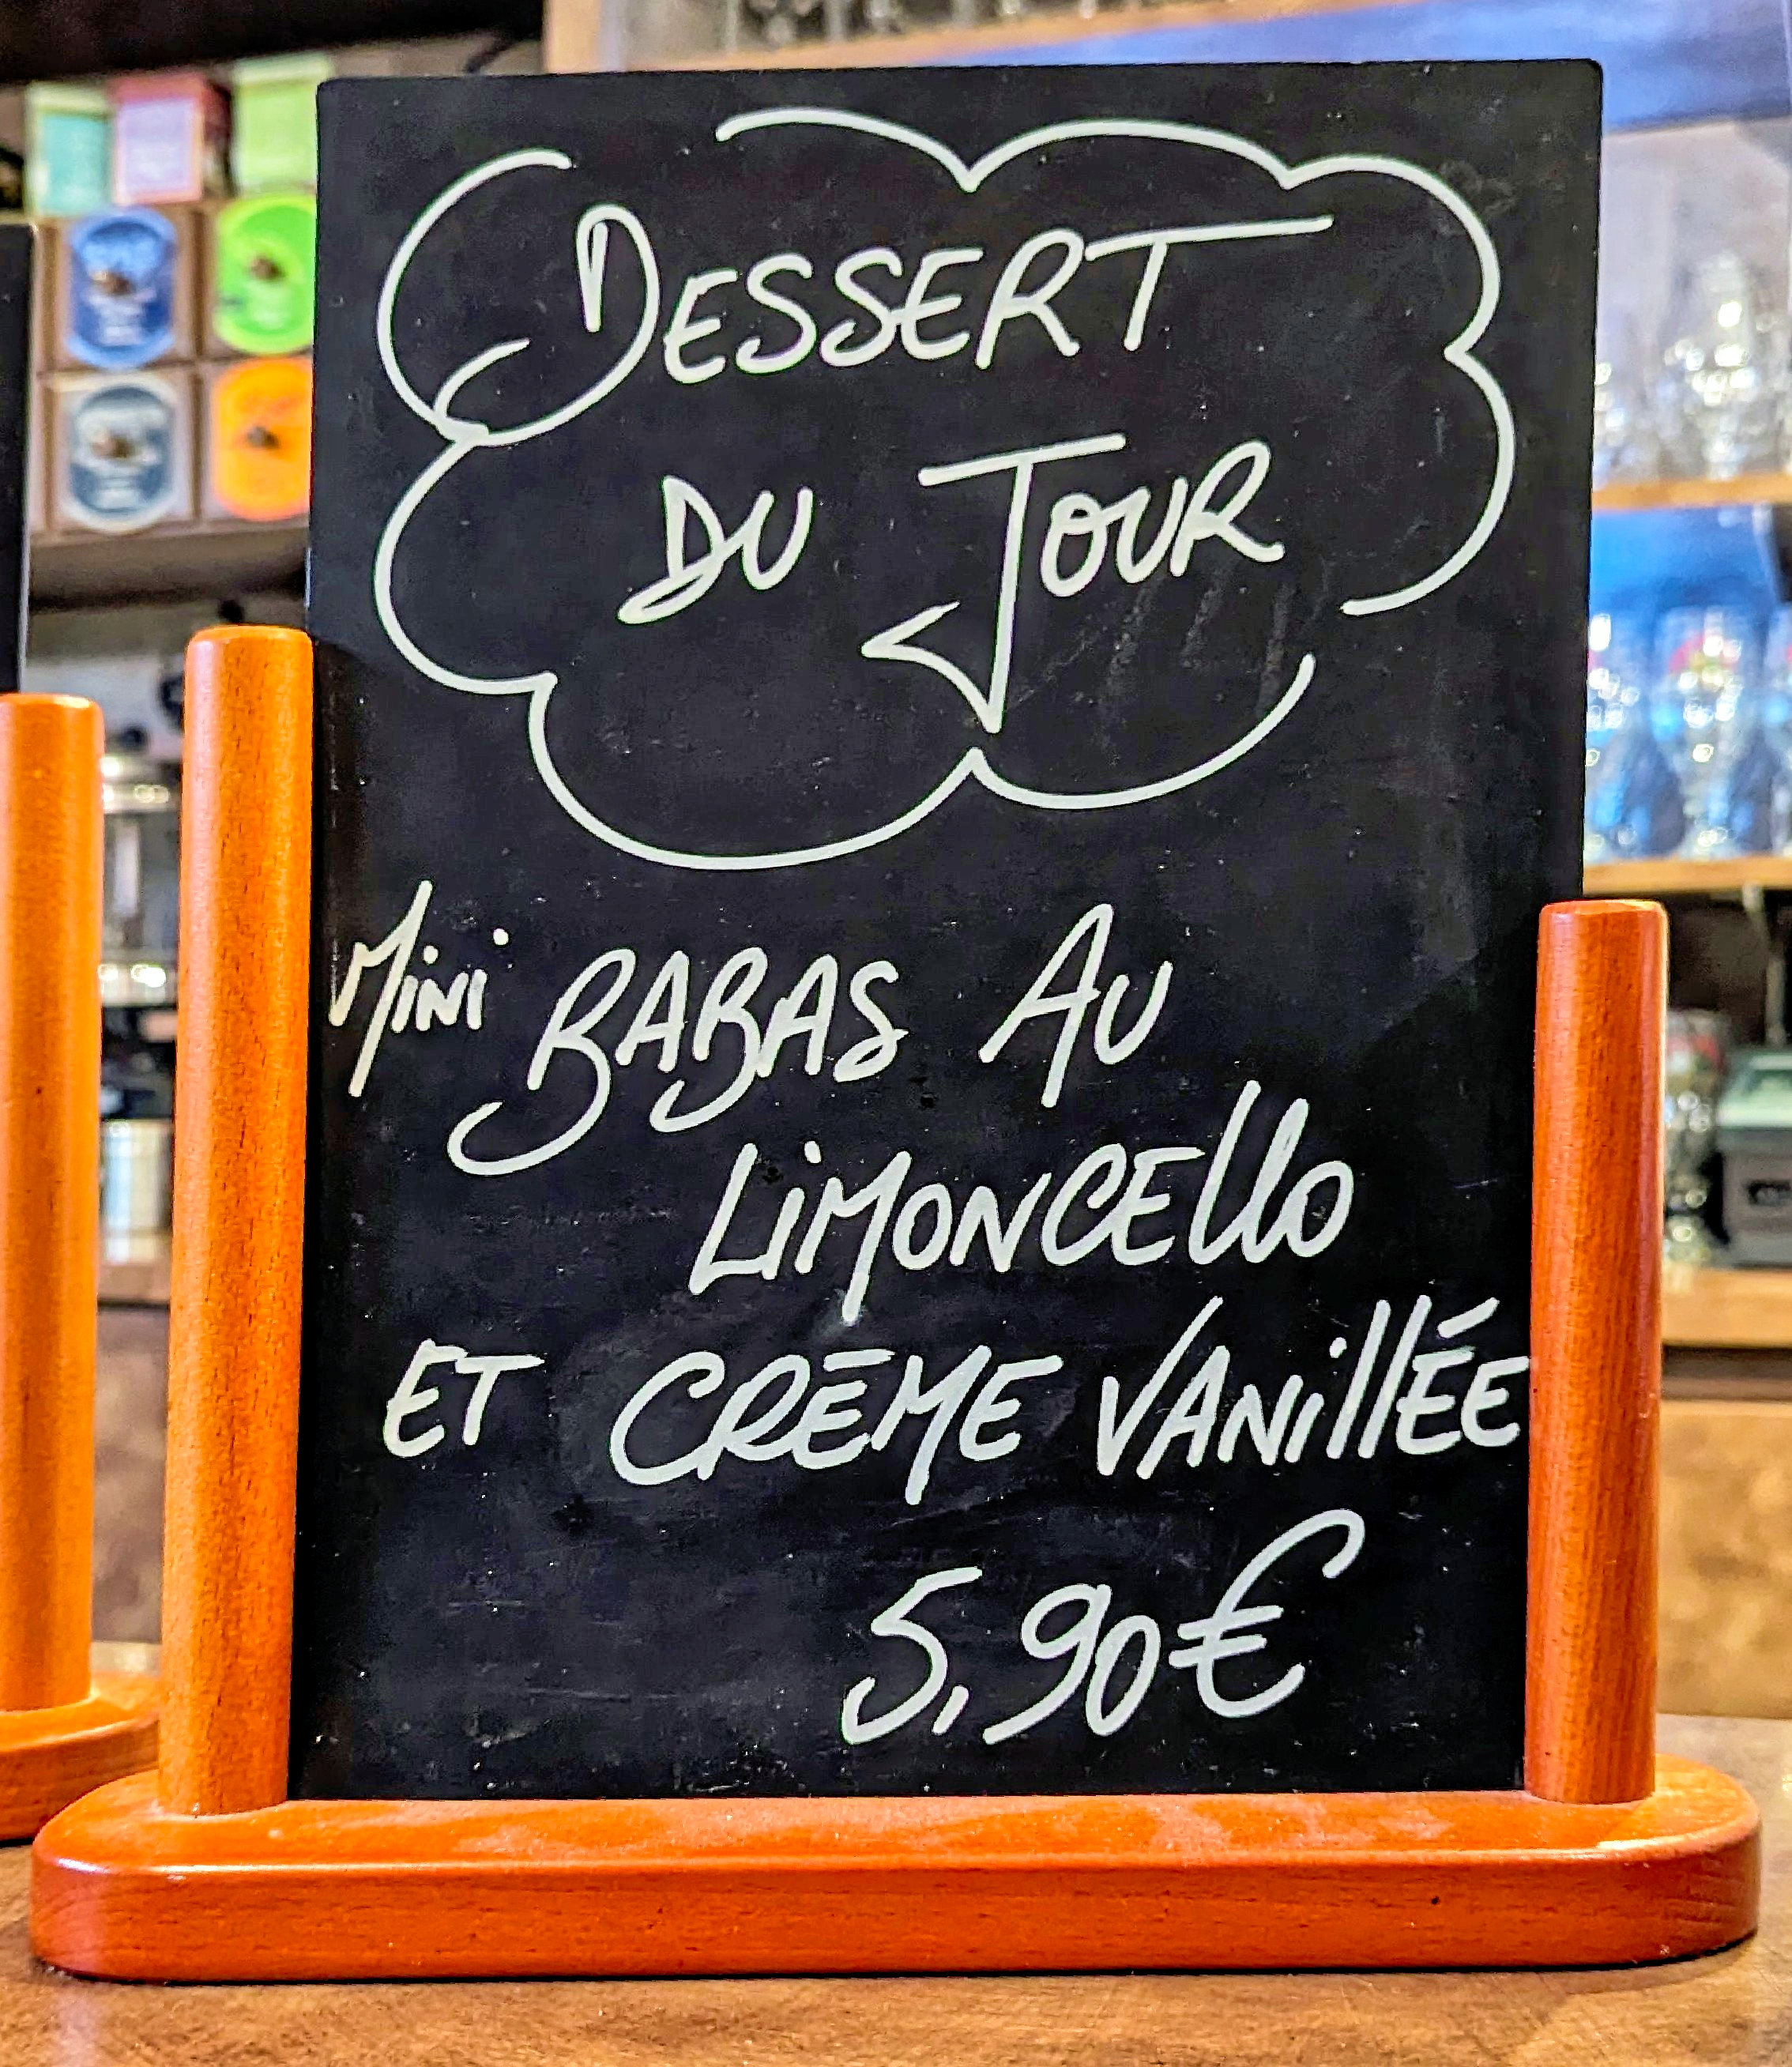 DESSERT
DU JOUR
Mini BABAS AU
LiMONCEllO
ET CRÈME VANillÉE
5,90€